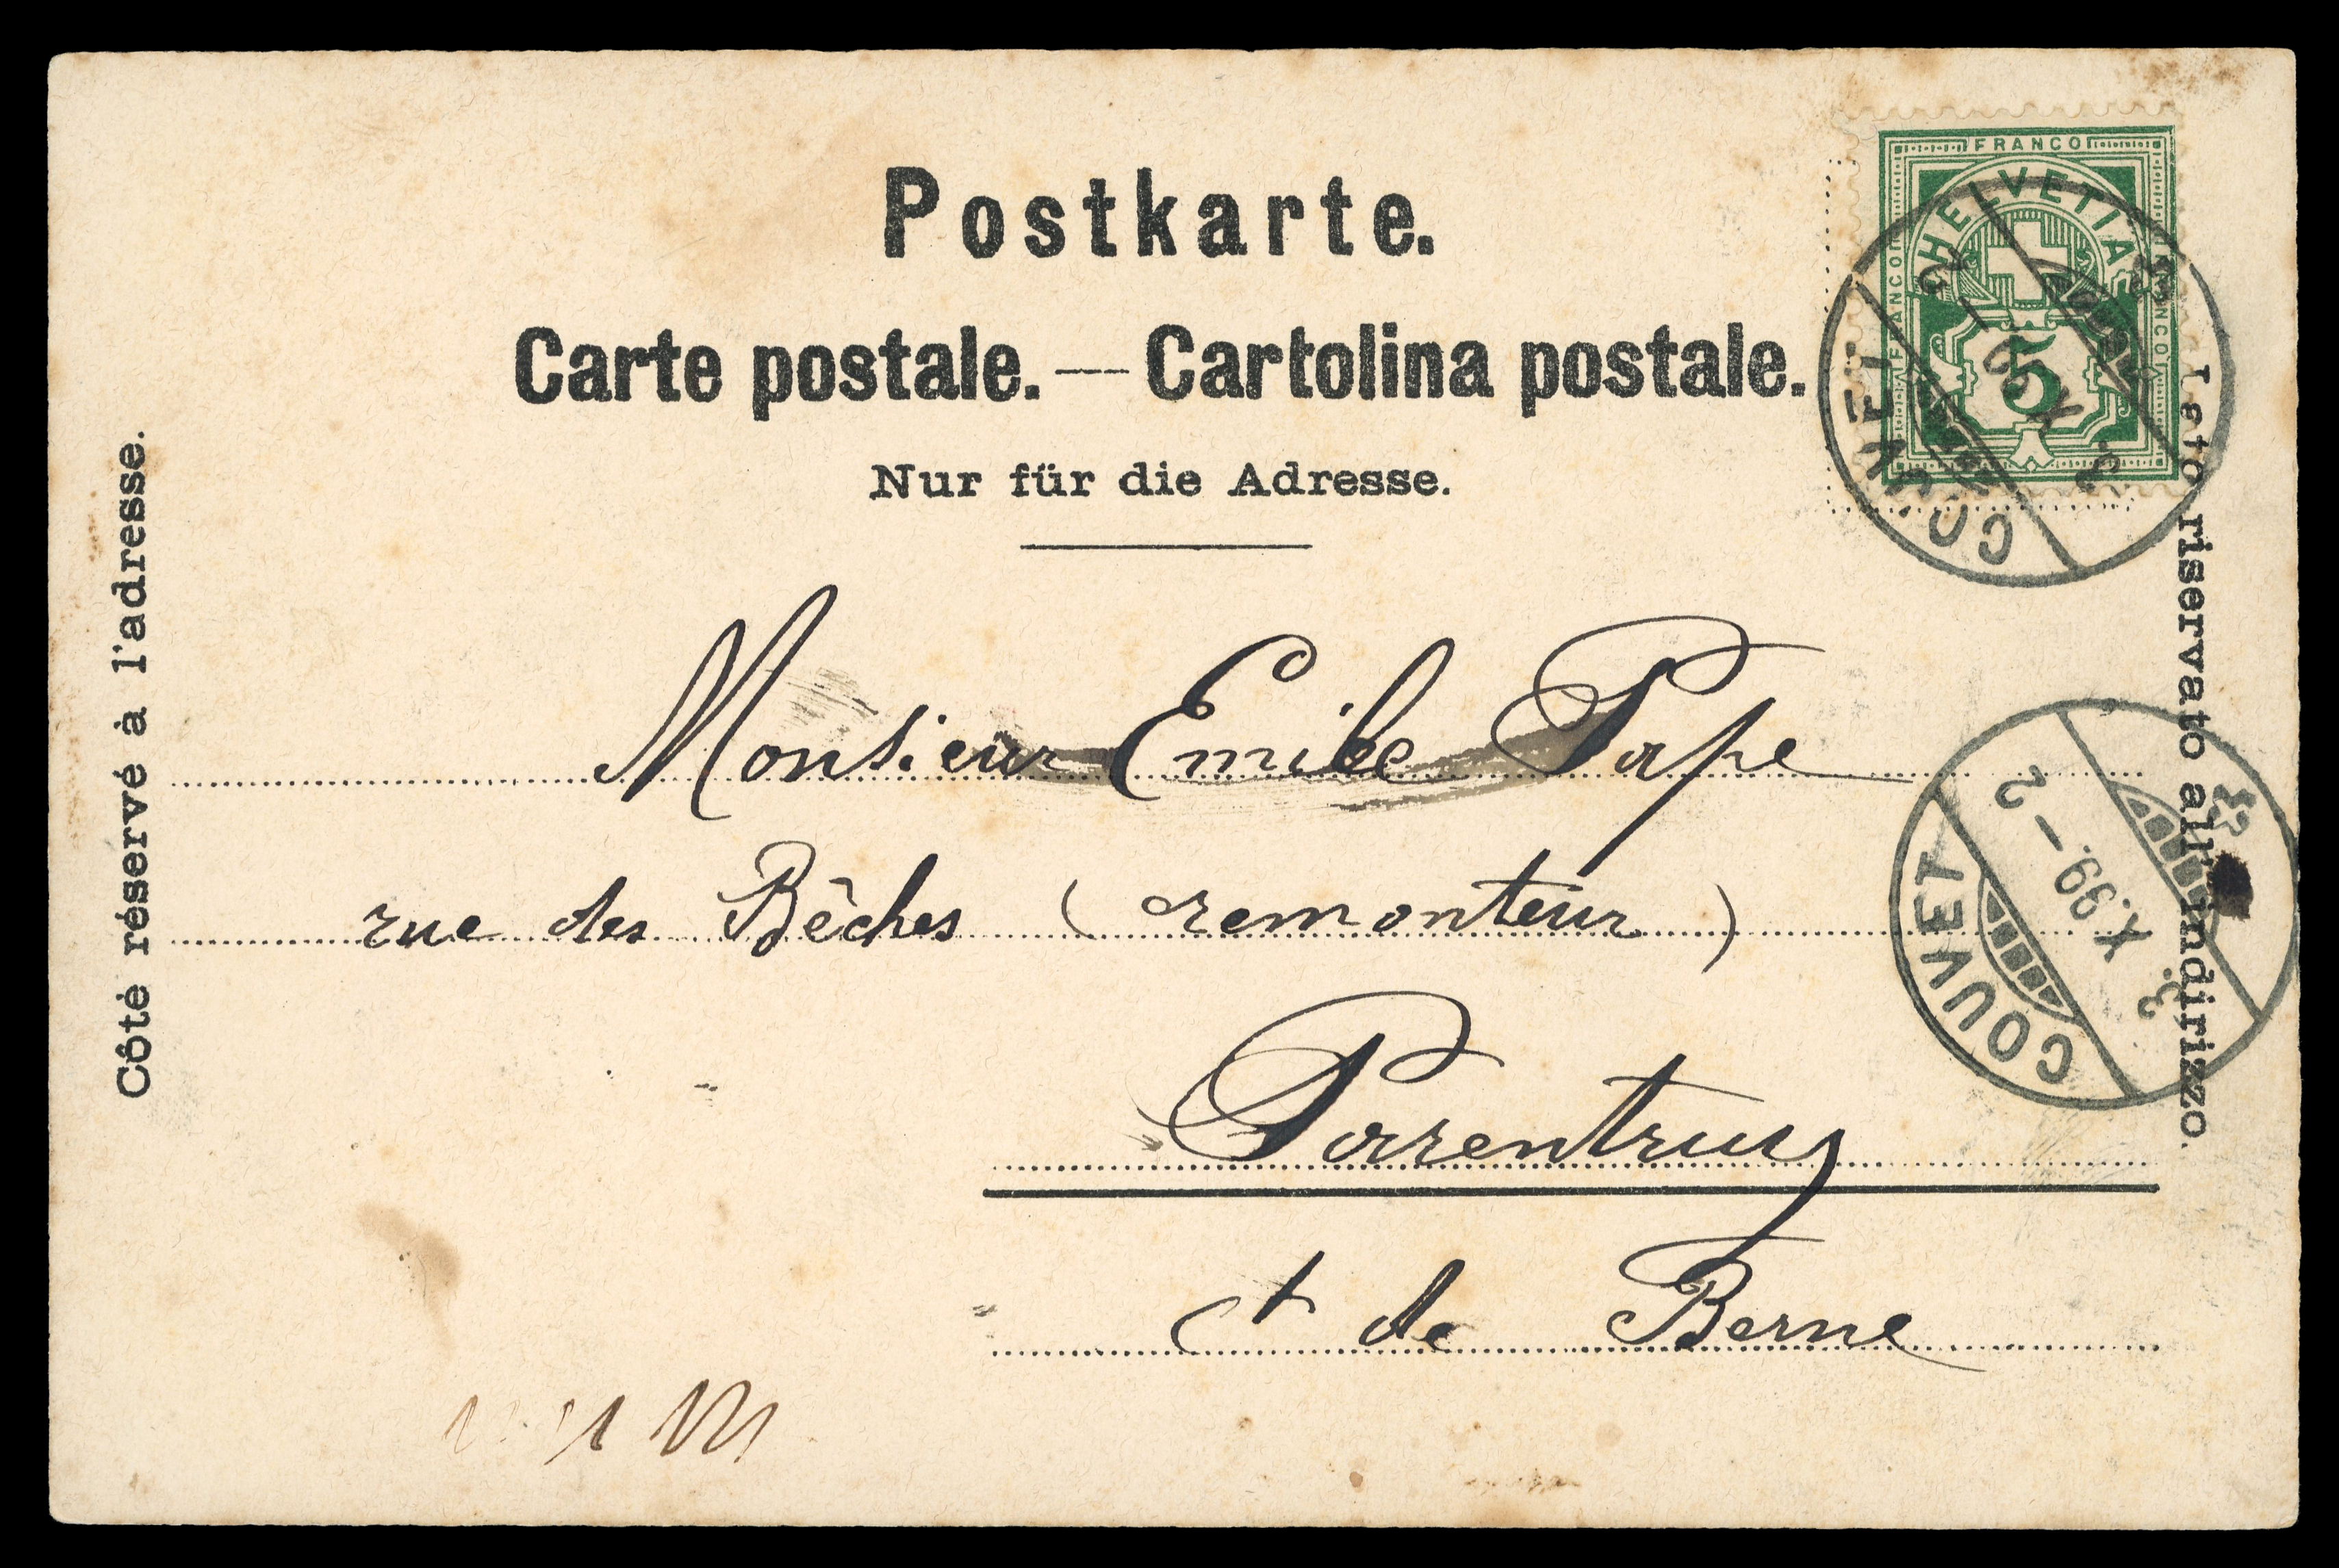 Postkarte.
Carte postale. — Cartolina postale.
Nur für die Adresse.
Côté réservé à l'adresse.
Lato riservato all'indirizzo.
FRANCO
FRANCO
FRANCO
HELVETIA
5
COUVET
3. X. 99. – 2
COUVET
3. X. 99. – 2
Monsieur Emile Pape
rue des Bêches (remonteur)
Porrentruy
ct de Berne